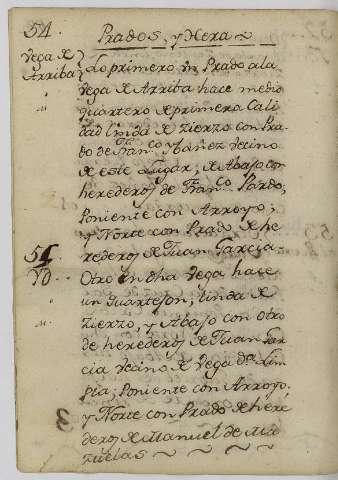 54.
Prados, y Heras
Vega de
Arriba
Lo primero un Prado a la
Vega de Arriba hace medio
quartero de primera Cali
dad linda de zierzo con Pra-
do de Franco Ibañez vecino
de este Lugar; de Abajo con
herederos de Franco Pardo;
Poniente con Arroyo;
y Norte con Prado de he-
rederos de Juan Garcia-
Otro en dha Vega hace
un quarteson; linda de
Zierzo, y Abajo con otro
de herederos de Juan Gar
cia vecino de Vega de Lim
pia; Poniente con Arroyo,
y Norte con Prado de here
deros de Manuel de Ma
zuelas